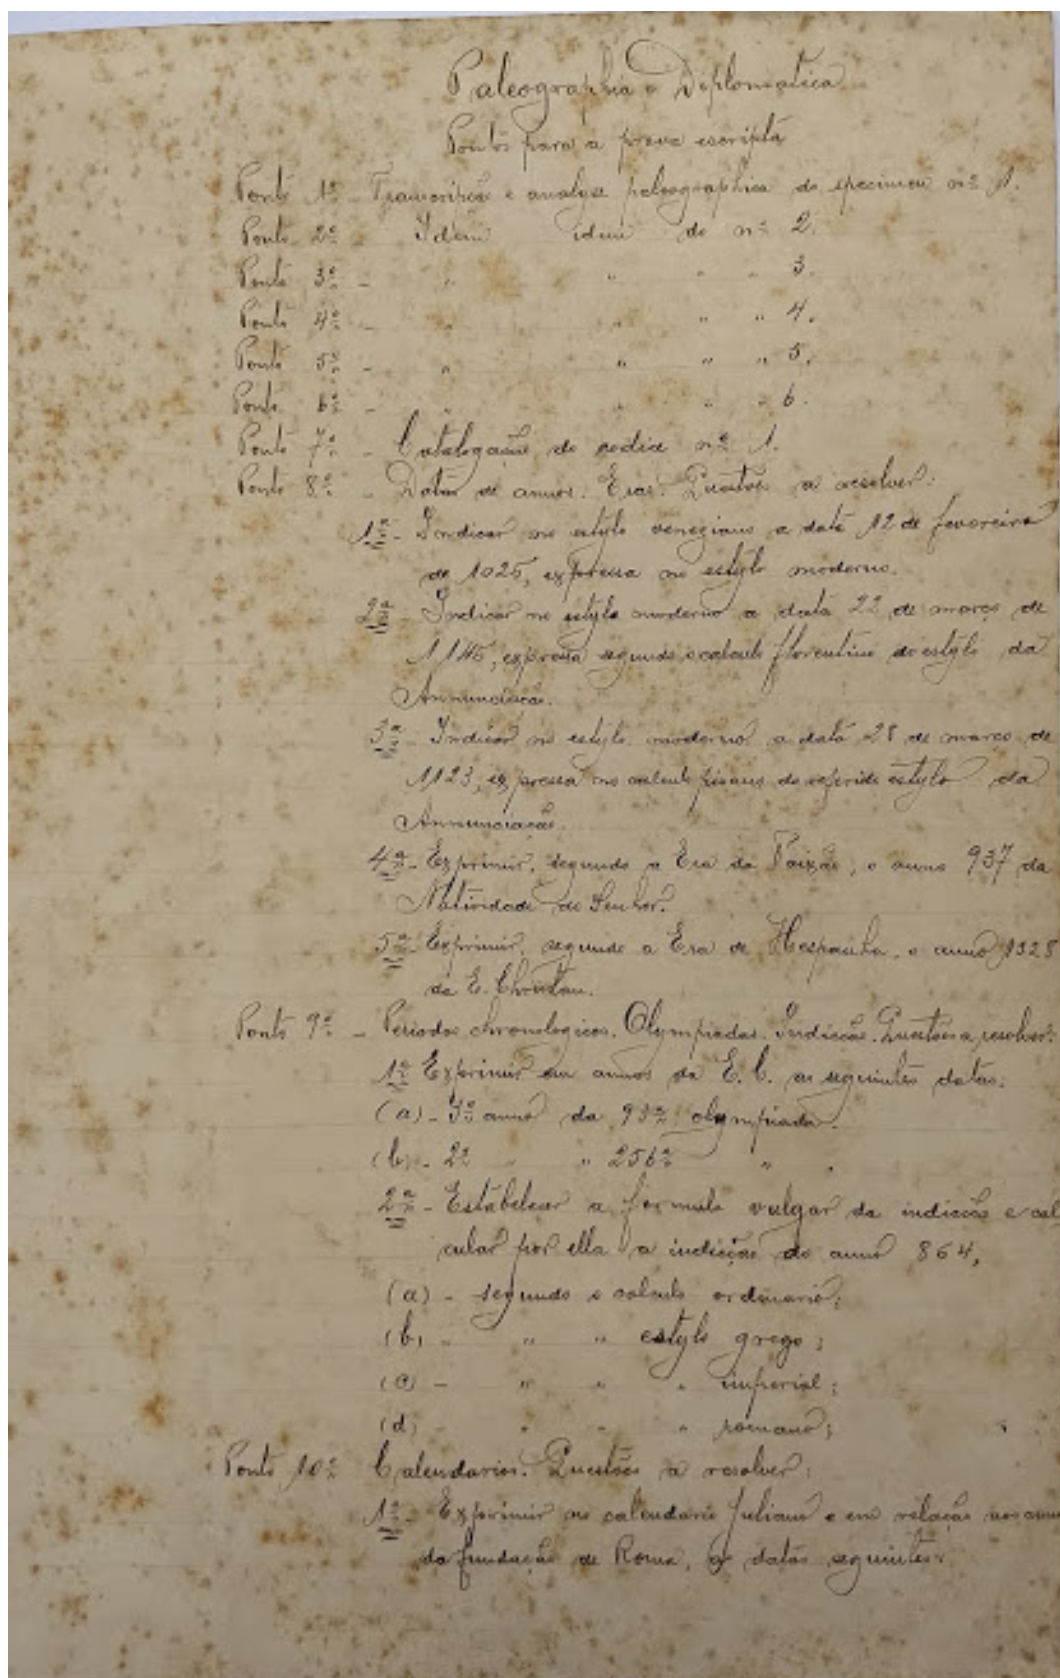 Paleographia e Diplomatica
Pontos para a prova escripta
Ponto 1º - Transcripção e analyse paleographica do specimen nº 1.
Ponto 2º - Idem idem do nº 2.
Ponto 3º - " " " " 3.
Ponto 4º - " " " " 4.
Ponto 5º - " " " " 5.
Ponto 6º - " " " " 6.
Ponto 7º - Catalogação do codice nº 1.
Ponto 8º - Datas de annos. Eras. Questões a resolver:
1ª - Indicar no estylo veneziano a data 12 de fevereiro
de 1025, expressa no estylo moderno.
2ª - Indicar no estylo moderno a data 22 de março de
expressa segundo o calculo florentino do estylo da
Annunciação.
3ª - Indicar no estylo moderno a data 28 de março de
1123, expressa no calculo pisano do referido estylo da
Annunciação.
4ª - Exprimir, segundo a Era da Paixão, o anno 937 da
Natividade do Senhor.
5ª - Exprimir, segundo a Era de Hespanha, o anno 1328
da E. Christan.
Ponto 9º - Periodos chronologicos. Olympiadas. Indicção. Questões a resolver:
1ª Exprimir em annos da E. C. as seguintes datas:
(a) - 3º anno da 93ª olympiada.
(b) - 2º " " 256ª " .
2ª - Estabelecer a formula vulgar da indicção e cal
cular por ella a indicção do anno 864,
(a) - segundo o calculo ordinario;
(b) - " " estylo grego;
(c) - " " " imperial;
(d) - " " " romano;
Ponto 10º Calendarios. Questões a resolver:
1ª - Exprimir no calendario Juliano e em relação aos
da fundação de Roma, as datas seguintes: